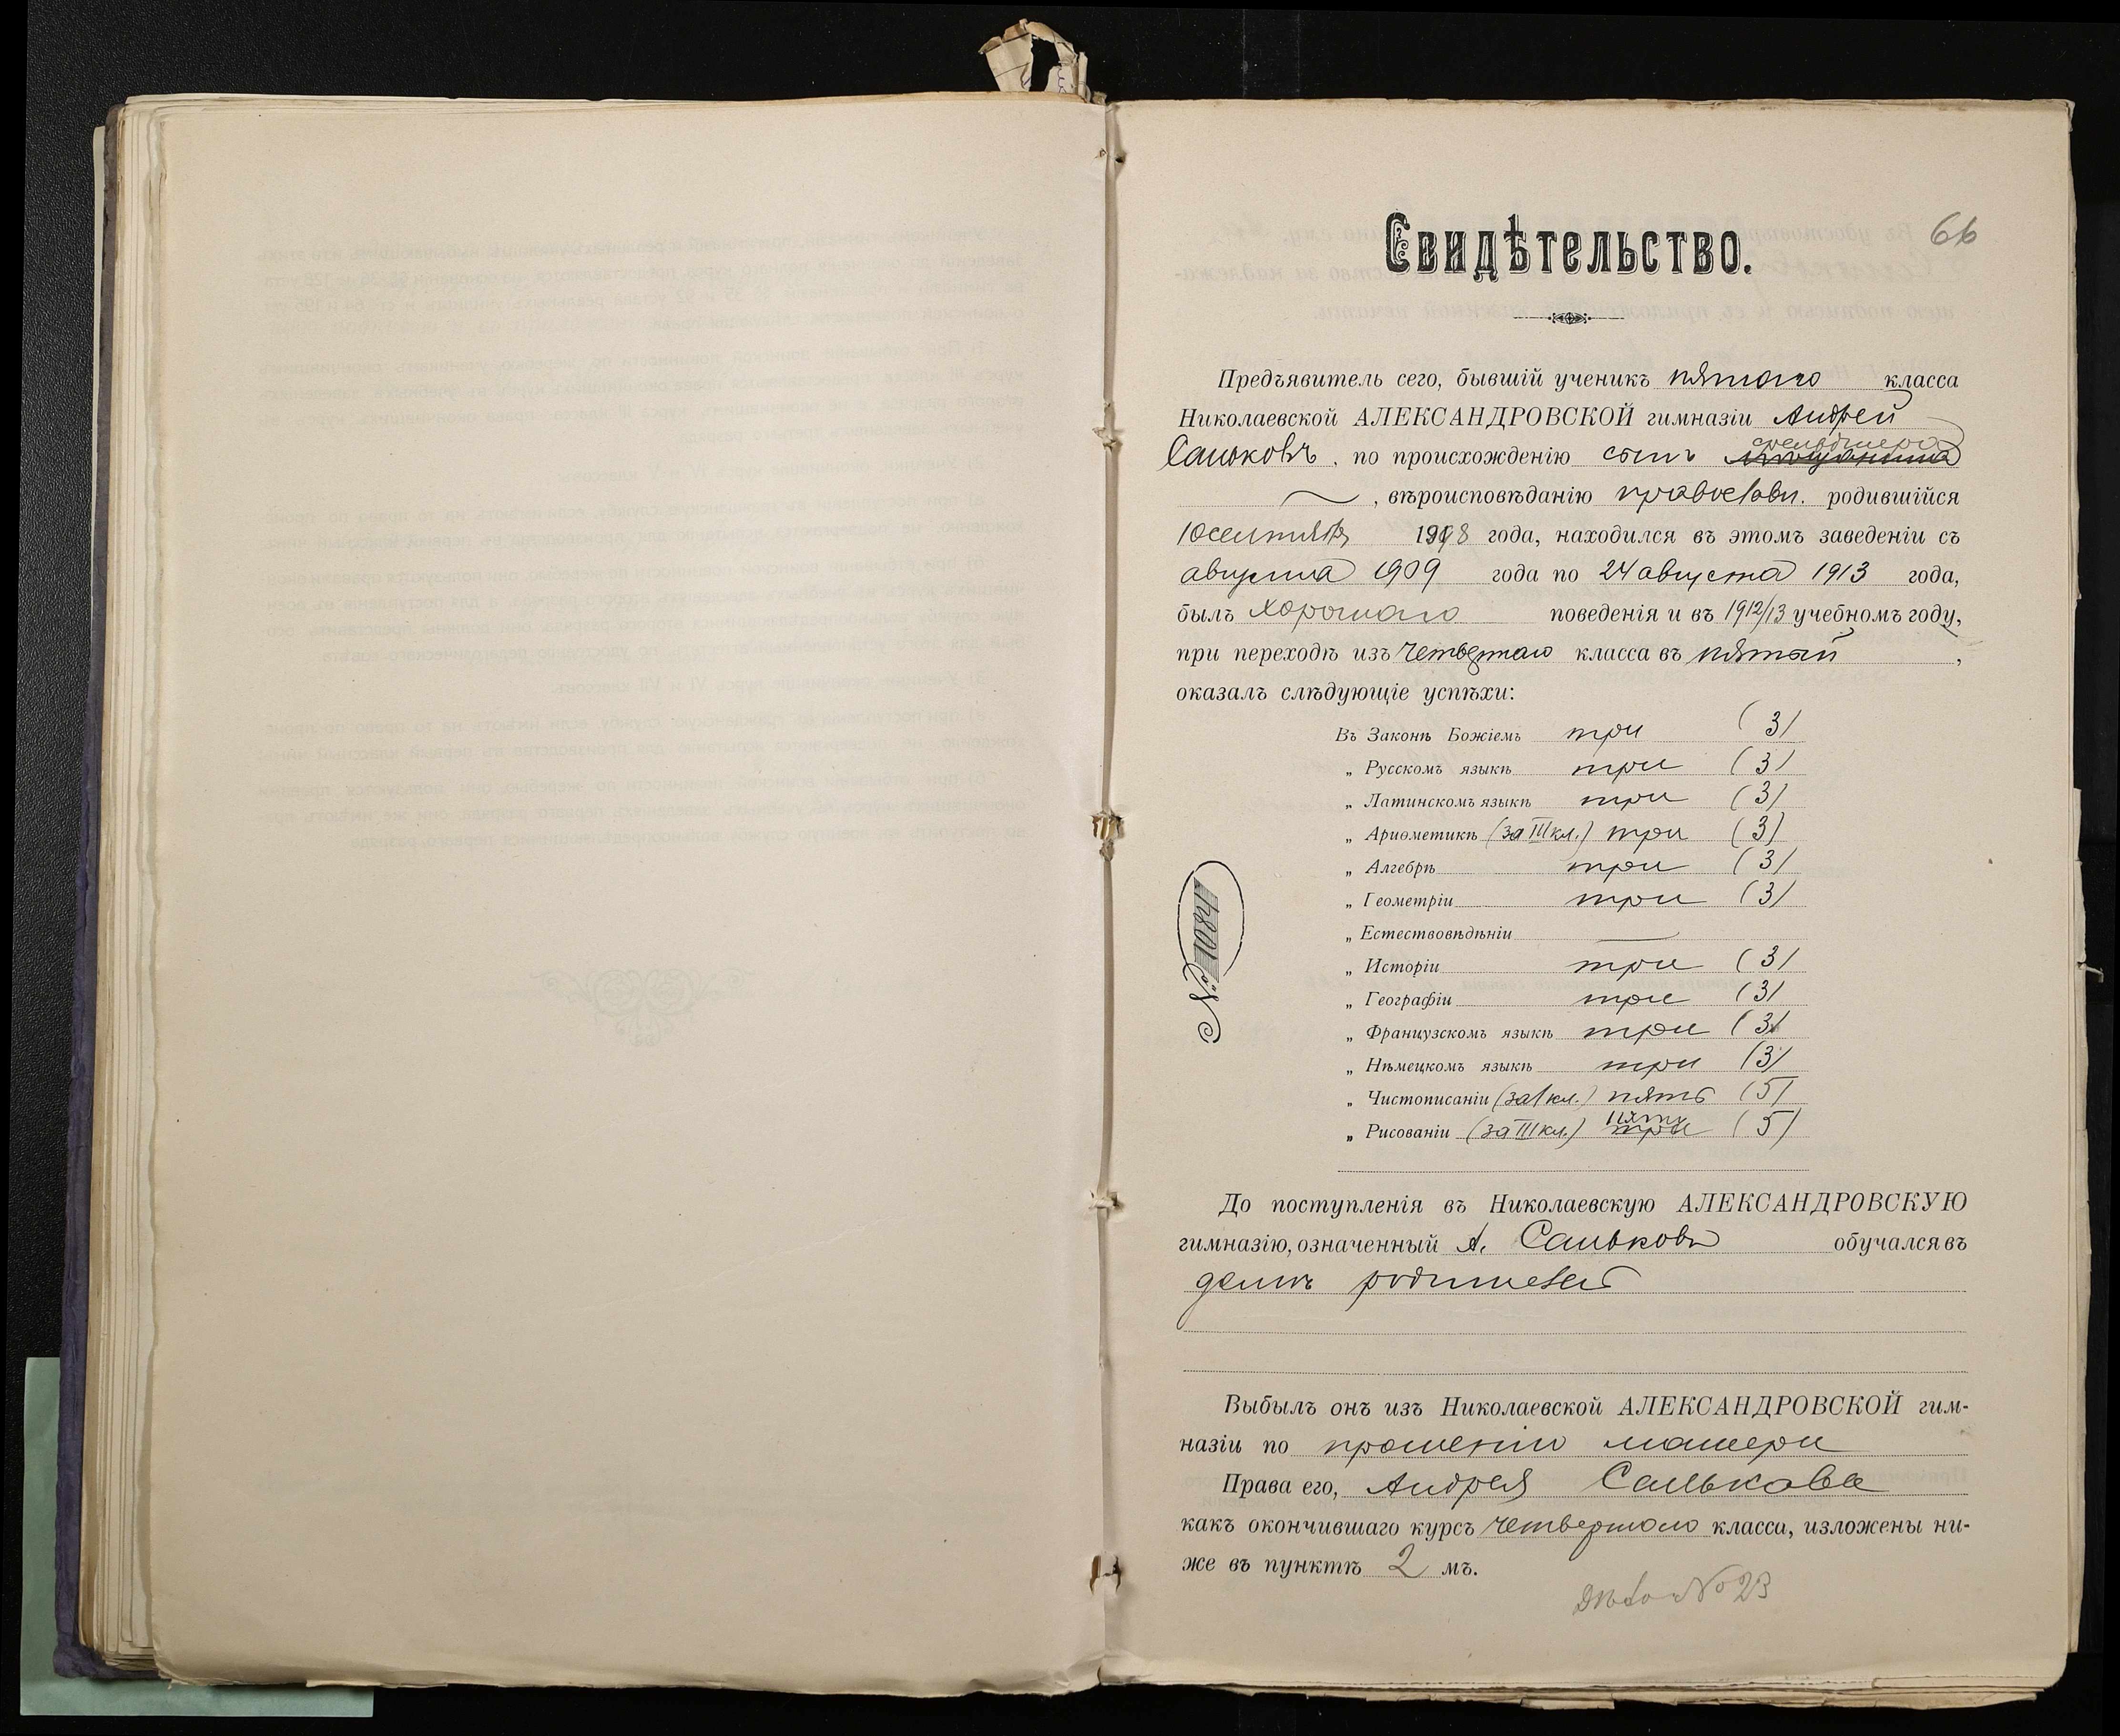 66
Свидѣтельство.
Предъявитель сего, бывшій ученикъ пятаго класса
Николаевской АЛЕКСАНДРОВСКОЙ гимназіи Андрей
фельдшера
Саньковъ, по происхожденію сынъ мѣщанина
, вѣроисповѣданію православн. родившійся
10 сентября 1898 года, находился въ этомъ заведеніи съ
августа 1909 года по 24 августа 1913 года,
былъ хорошаго поведенія и въ 1912/13 учебномъ году,
при переходѣ изъ четвертаго класса въ пятый,
оказалъ слѣдующіе успѣхи:
Въ Законѣ Божіемъ три (3)
„ Русскомъ языкѣ три (3)
„ Латинскомъ языкѣ три (3)
„ Ариѳметикѣ (за III кл.) три (3)
„ Алгебрѣ три (3)
„ Геометріи три (3)
„ Естествовѣдѣніи —
„ Исторіи три (3)
„ Географіи три (3)
„ Французскомъ языкѣ три (3)
„ Нѣмецкомъ языкѣ три (3)
„ Чистописаніи (за 1 кл.) пять (5)
пять
„ Рисованіи (за III кл.) три (5)
№ 1084
До поступленія въ Николаевскую АЛЕКСАНДРОВСКУЮ
гимназію, означенный А. Саньковъ обучался въ
домѣ родителей
Выбылъ онъ изъ Николаевской АЛЕКСАНДРОВСКОЙ гим-
назіи по прошенію матери
Права его, Андрея Санькова
какъ окончившаго курсъ четвертаго класса, изложены ни-
же въ пунктѣ 2 мъ.
Дѣло № 23